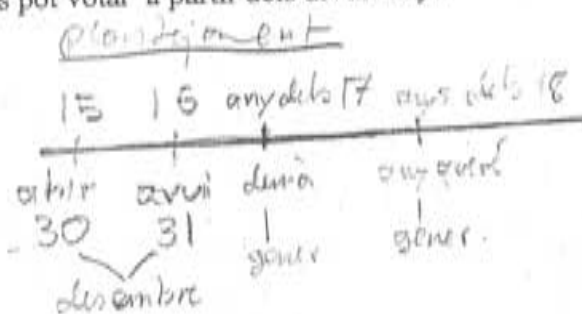 s pot votar a partir dels
plantejament
15 16 any dels 17 anys dels 18
ahir avui demà any
30 31 gener gener.
desembre